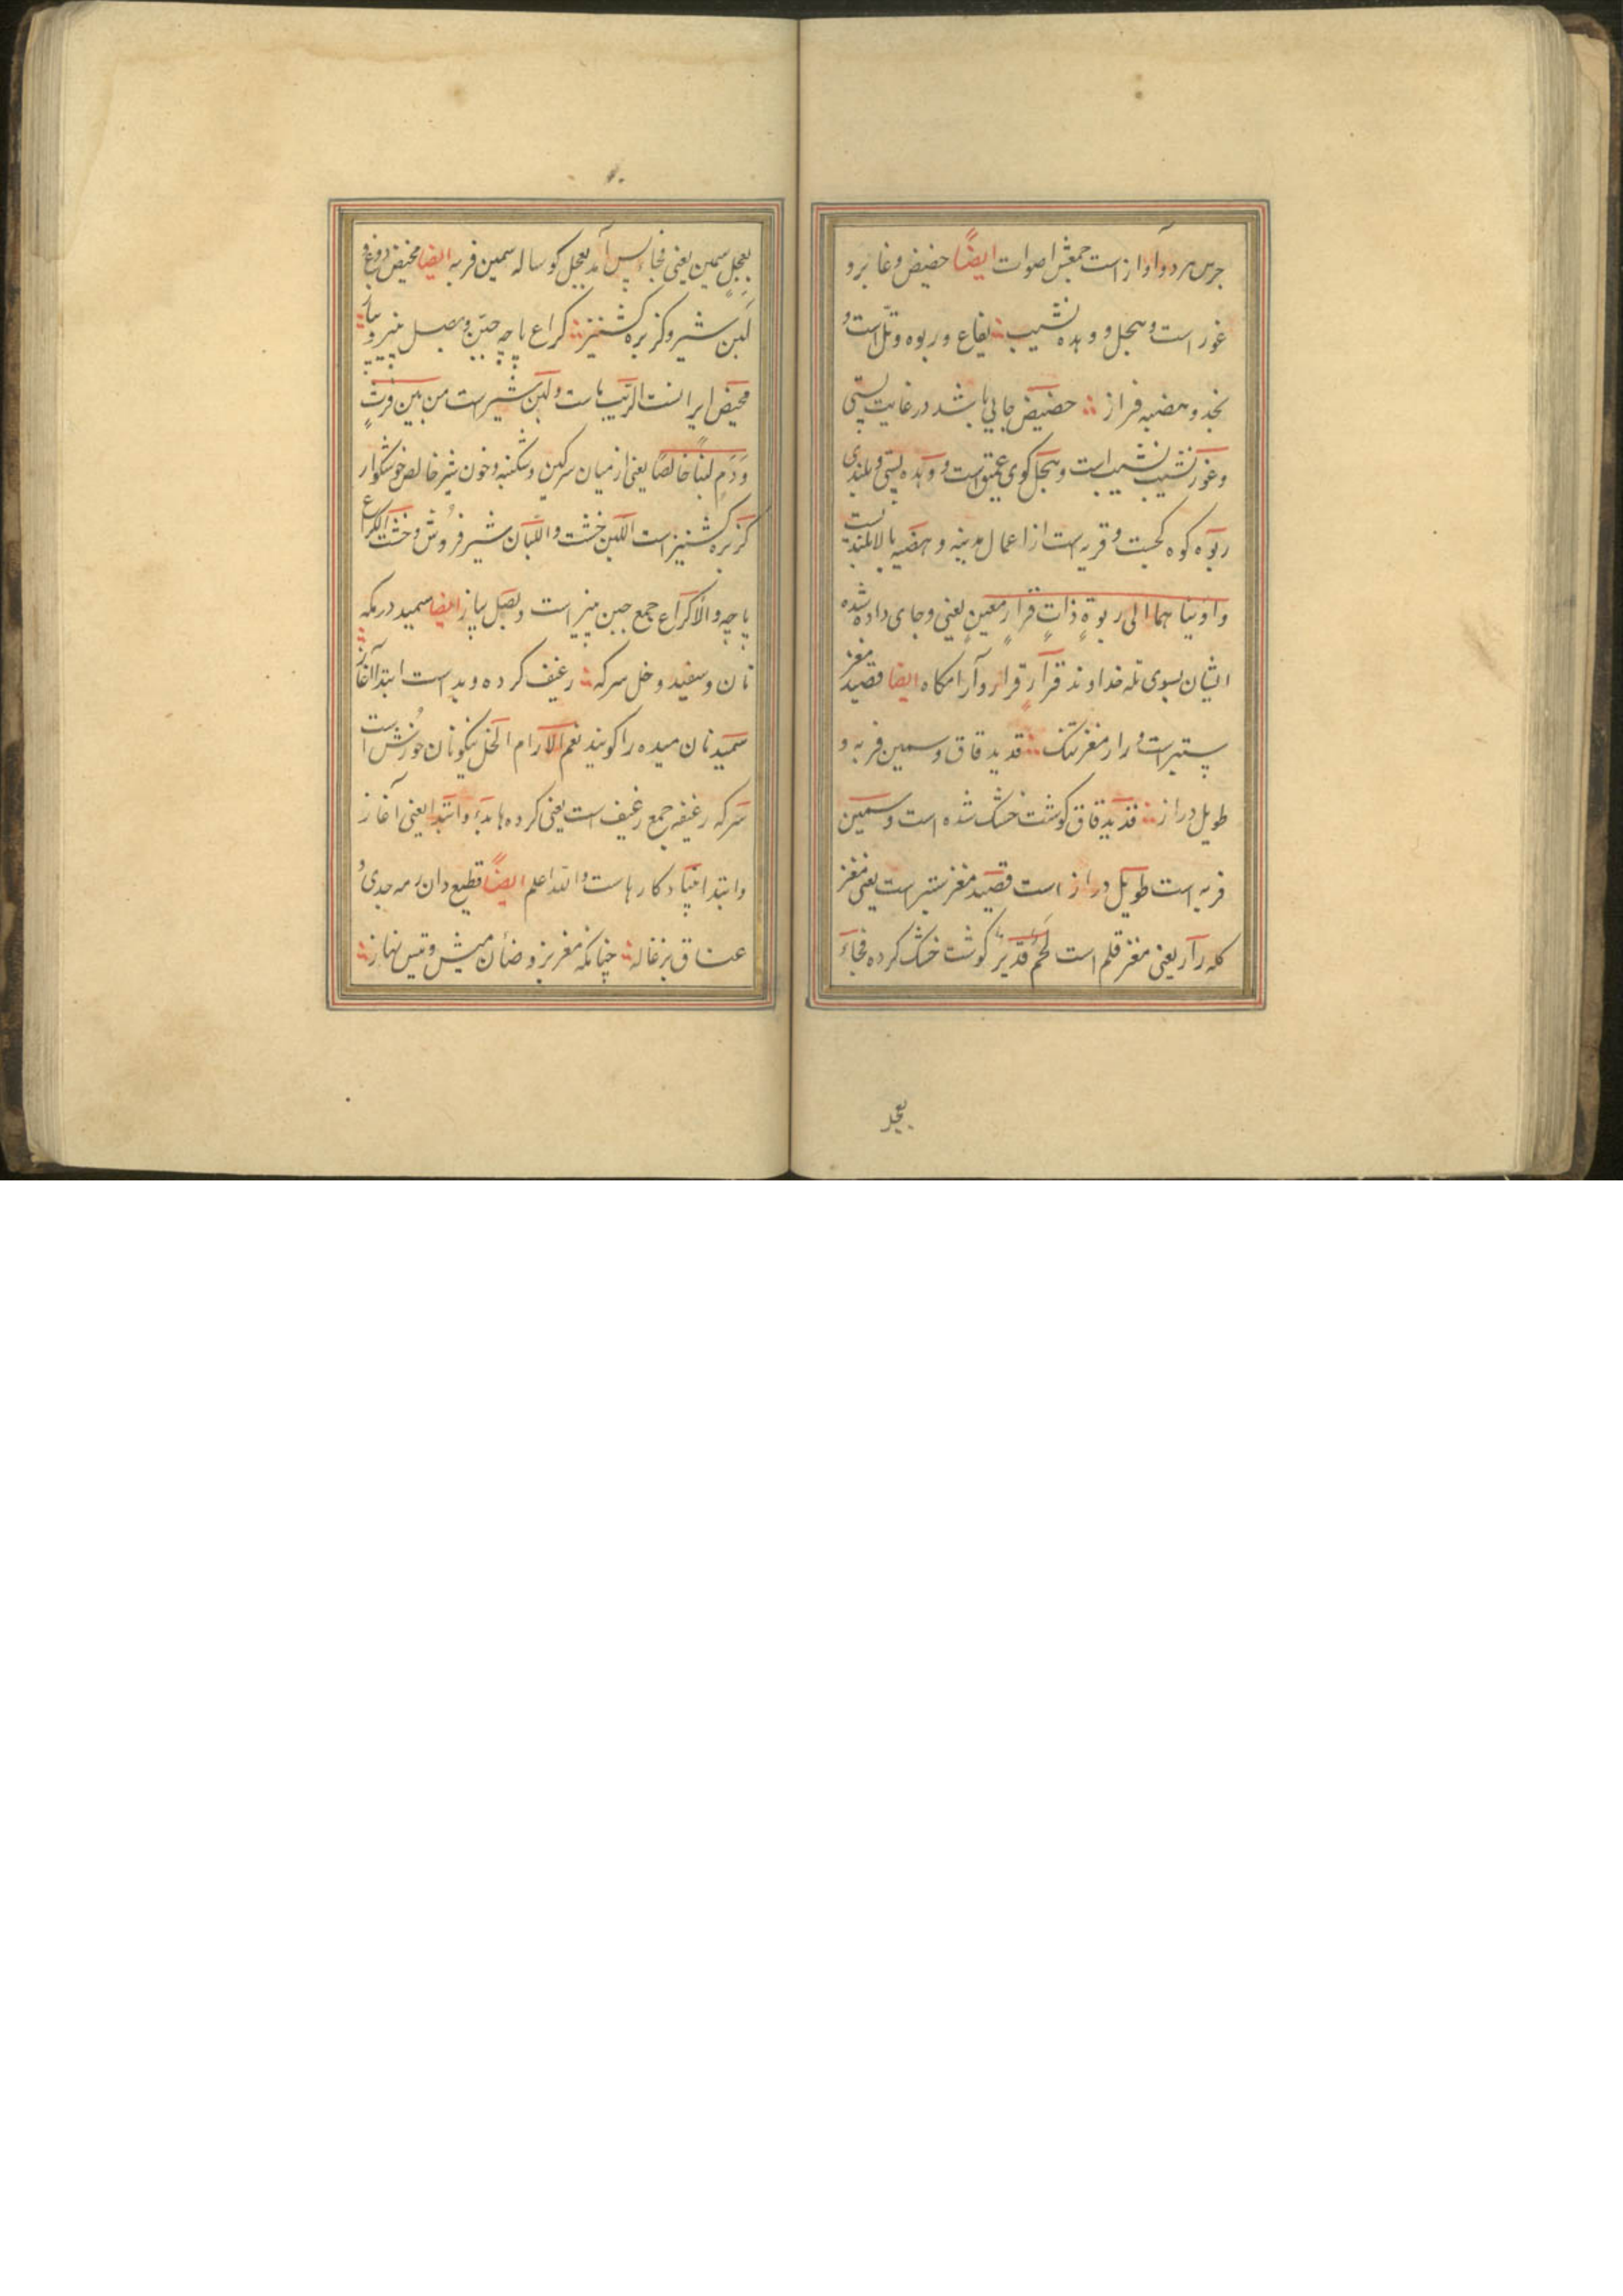 جرس هر دو آواز است جمعش اصوات ایضاً حضیض و غابر و
غور است و هجل و وهده نشیب یفاع و ربوه و تل است و
نجد و هضبه فراز حضیض جایی باشد در غایت پستی
و غور نشیب نشیب است و هجل کوی عمیق است و وهده پستی و بلندی
ربوه کوه کجست و قریه است از اعمال مدینه و هضبه بالا بلندیست
و اوینا هما الی ربوةٍ ذاتِ قرارٍ معینٍ یعنی و جای داده شده
ایشان بسوی تله خداوند قرارٍ قرار و آرامکاه ایضا قصید مغز
ستبر است و رار مغز تنک قدید قاق و سمین فربه و
طویل دراز قدید قاق کوشت خشک شده است و سمین
فربه است طویل دراز است قصید مغز ستبر است یعنی مغز
کله رار یعنی مغز قلم است لحمٌ قدیدٌ کوشت خشک کرده فجاءَ
بعجل
بعجلٍ سمین یعنی فجاء پس آمد بعجل کوساله سمین فربه ایضا مخیض دوغ و
لَبَن شیر و کزبره کشنیز کراع پاچه جبن و بصل پنیر و پیاز
مخیض ایرانست الرایب ماست و لبن شیر است من بین فرثٍ
وَ دَمٍ لبناً خالصاً یعنی از میان سرکین و شکنبه و خون شیر خالص خوشکوار
کزبره کشنیز است اللبن خشت و اللبان شیر فروش و خشت الکراع
پاچه و الاکراع جمع جبن پنیر است و بصل پیاز ایضا سمید درمکه
نان و سفید و خل سرکه رغیف کرده و بدء است ابتدا آغاز
سمید نان میده را کویند نعم الادام الخل نیکو نان خورش است
سرکه رغیفه جمع رغیف است یعنی کرده ها بدء و ابتدا یعنی آغاز
و ابتدا بنیاد کارهاست و الله اعلم ایضاً قطیع دان رمه جدی و
عناق بزغاله چنانکه معز بز و ضأن میش و تیس نهاز